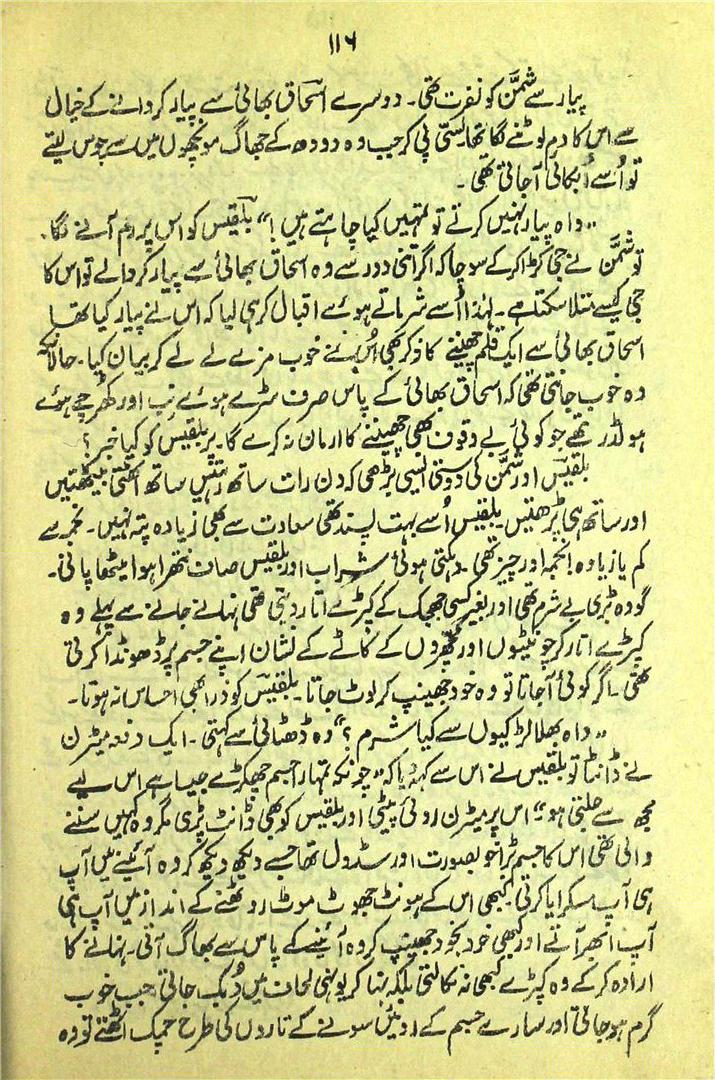 ۱۱۶
پیار سے شمّن کو نفرت تھی۔ دوسرے اسحاق بھائی سے پیار کروانے کے خیال
سے اس کا دم لوٹنے لگا تھا۔ لسّی پی کر جب وہ دودھ کے جھاگ مونچھوں میں سے چوس لیتے
تو اُسے اُبکائی آجاتی تھی۔
"واہ پیار نہیں کرتے تو تمہیں کیا چاہتے ہیں!" بلقیس کو اس پر رحم آنے لگا۔
تو شمّن نے جی کڑا کر کے سوچا کہ اگر اتنی دور سے وہ اسحاق بھائی سے پیار کروالے تو اس کا
جی کیسے متلا سکتا ہے۔ لہٰذا اُسے شرماتے ہوئے اقبال کر ہی لیا کہ اس نے پیار کیا تھا
اسحاق بھائی سے ایک قلم چھیننے کا ذکر بھی اُس نے خوب مزے لے لے کر بیان کیا۔ حالانکہ
وہ خوب جانتی تھی کہ اسحاق بھائی کے پاس صرف سڑے ہوئے نب اور کھرچے ہوئے
ہولڈر تھے جو کوئی بے وقوف بھی چھیننے کا ارمان نہ کرے گا۔ پر بلقیس کو کیا خبر؟
بلقیس اور شمّن کی دوستی ایسی بڑھی کہ دن رات ساتھ رہتیں ساتھ اٹھتی بیٹھتیں
اور ساتھ ہی پڑھتیں۔ بلقیس اُسے بہت پسند تھی سعادت سے بھی زیادہ پتہ نہیں۔ نجمہ سے
کم یا زیادہ! نجمہ اور چیز تھی۔ دہکتی ہوئی شراب اور بلقیس صاف نتھرا ہوا میٹھا پانی۔
گو وہ بڑی بے شرم تھی اور بغیر کسی جھجک کے کپڑے اتار دیتی تھی نہانے جانے سے پہلے وہ
کپڑے اتار کر چونٹیوں اور مچھروں کے کاٹے کے نشان اپنے جسم پر ڈھونڈا کرتی
تھی۔ اگر کوئی آجاتا تو وہ خود جھینپ کر لوٹ جاتا۔ بلقیس کو ذرا بھی احساس نہ ہوتا۔
"واہ بھلا لڑکیوں سے کیا شرم؟" وہ ڈھٹائی سے کہتی۔ ایک دفعہ میٹرن
نے ڈانٹا تو بلقیس نے اس سے کہہ دیا کہ "چونکہ تمہارا جسم چھکڑے جیسا ہے اس لیے
مجھ سے جلتی ہو" اس پر میٹرن روئی پیٹی اور بلقیس کو بھی ڈانٹ پڑی مگر وہ کہیں سننے
والی تھی اس کا جسم بڑا خوبصورت اور سڈول تھا جسے دیکھ دیکھ کر وہ آئینے میں آپ
ہی آپ مسکرایا کرتی۔ کبھی اس کے ہونٹ جھوٹ موٹ روٹھنے کے انداز میں آپ ہی
آپ ابھر آتے اور کبھی خود بخود جھینپ کر وہ آئینے کے پاس سے بھاگ آتی۔ نہانے کا
ارادہ کر کے وہ کپڑے کبھی نہ نکالتی بلکہ نہا کر یونہی لحاف میں دُبک جاتی جب خوب
گرم ہو جاتی اور سارے جسم کے روئیں سونے کے تاروں کی طرح چمک اٹھتے تو وہ